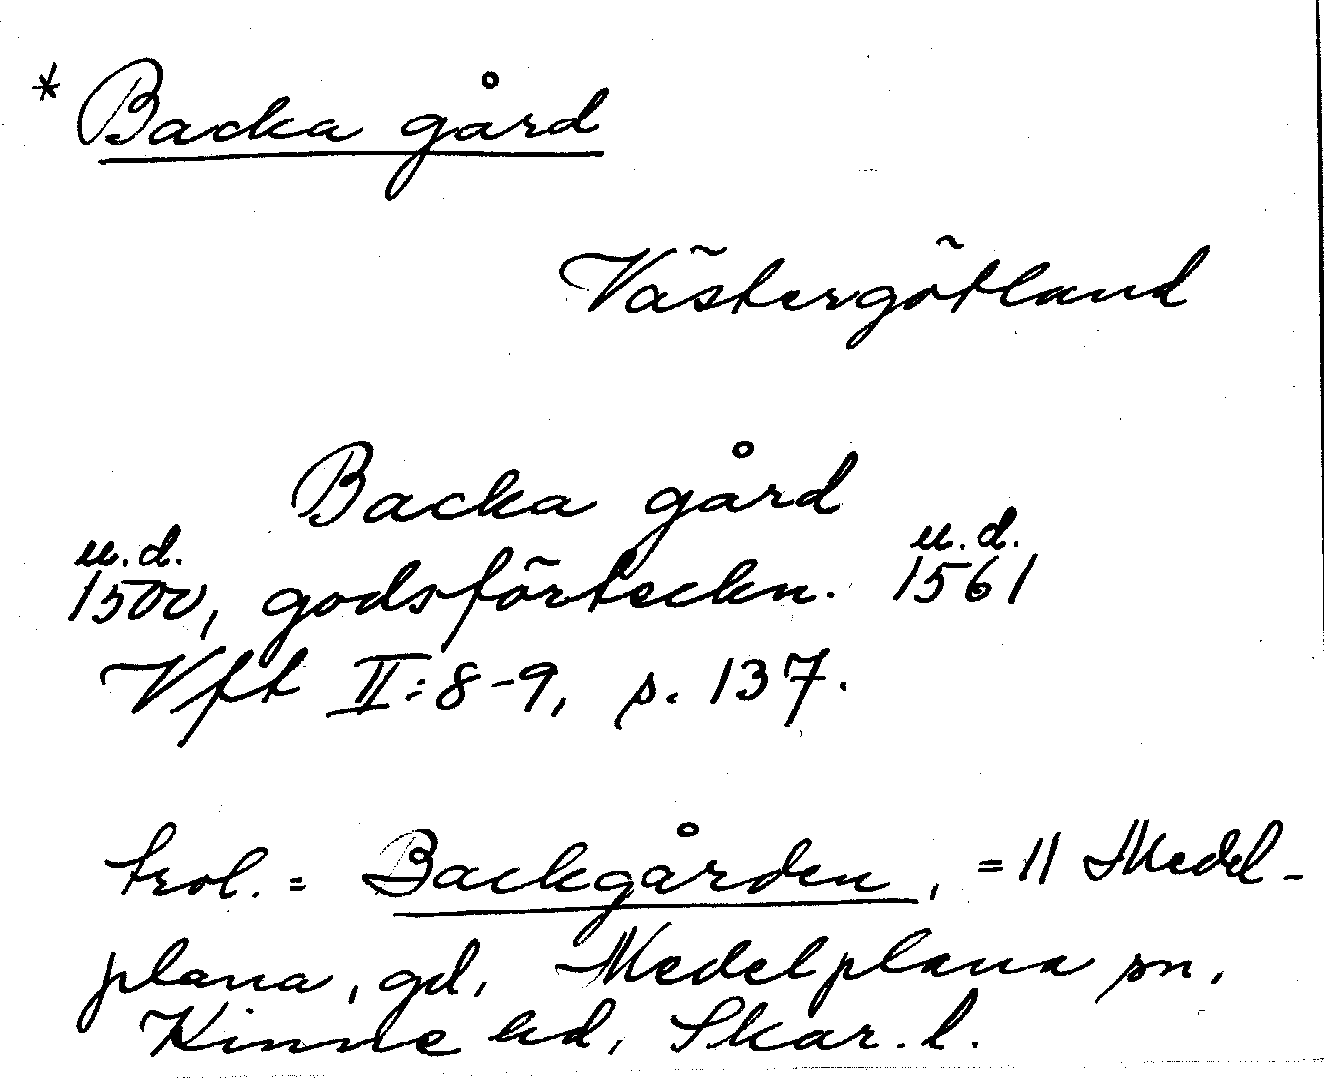 * Backa gård
Västergötland
Backa gård
u.d. u.d.
1500, godsförteckn. 1561
Vft II:8-9, s. 137.
trol. = Backgården, = 11 Medel-
plana, gd, Medelplana sn,
Kinne hd, Skar. l.